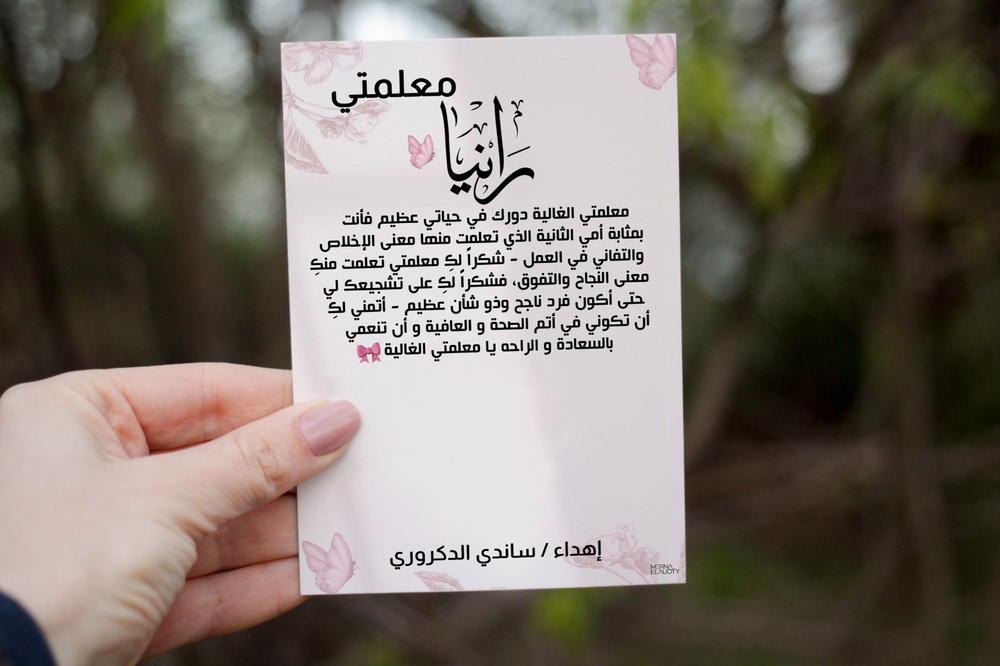 معلمتي
رانيا
معلمتي الغالية دورك في حياتي عظيم فأنت
بمثابة أمي الثانية الذي تعلمت منها معنى الإخلاص
والتفاني في العمل - شكراً لكِ معلمتي تعلمت منكِ
معنى النجاح والتفوق، فشكراً لكِ على تشجيعك لي
حتى أكون فرد ناجح وذو شأن عظيم - أتمني لكِ
أن تكوني في أتم الصحة و العافية و أن تنعمي
بالسعادة و الراحه يا معلمتي الغالية🎀
إهداء / ساندي الدكروري
MERNA
ELAUOTY